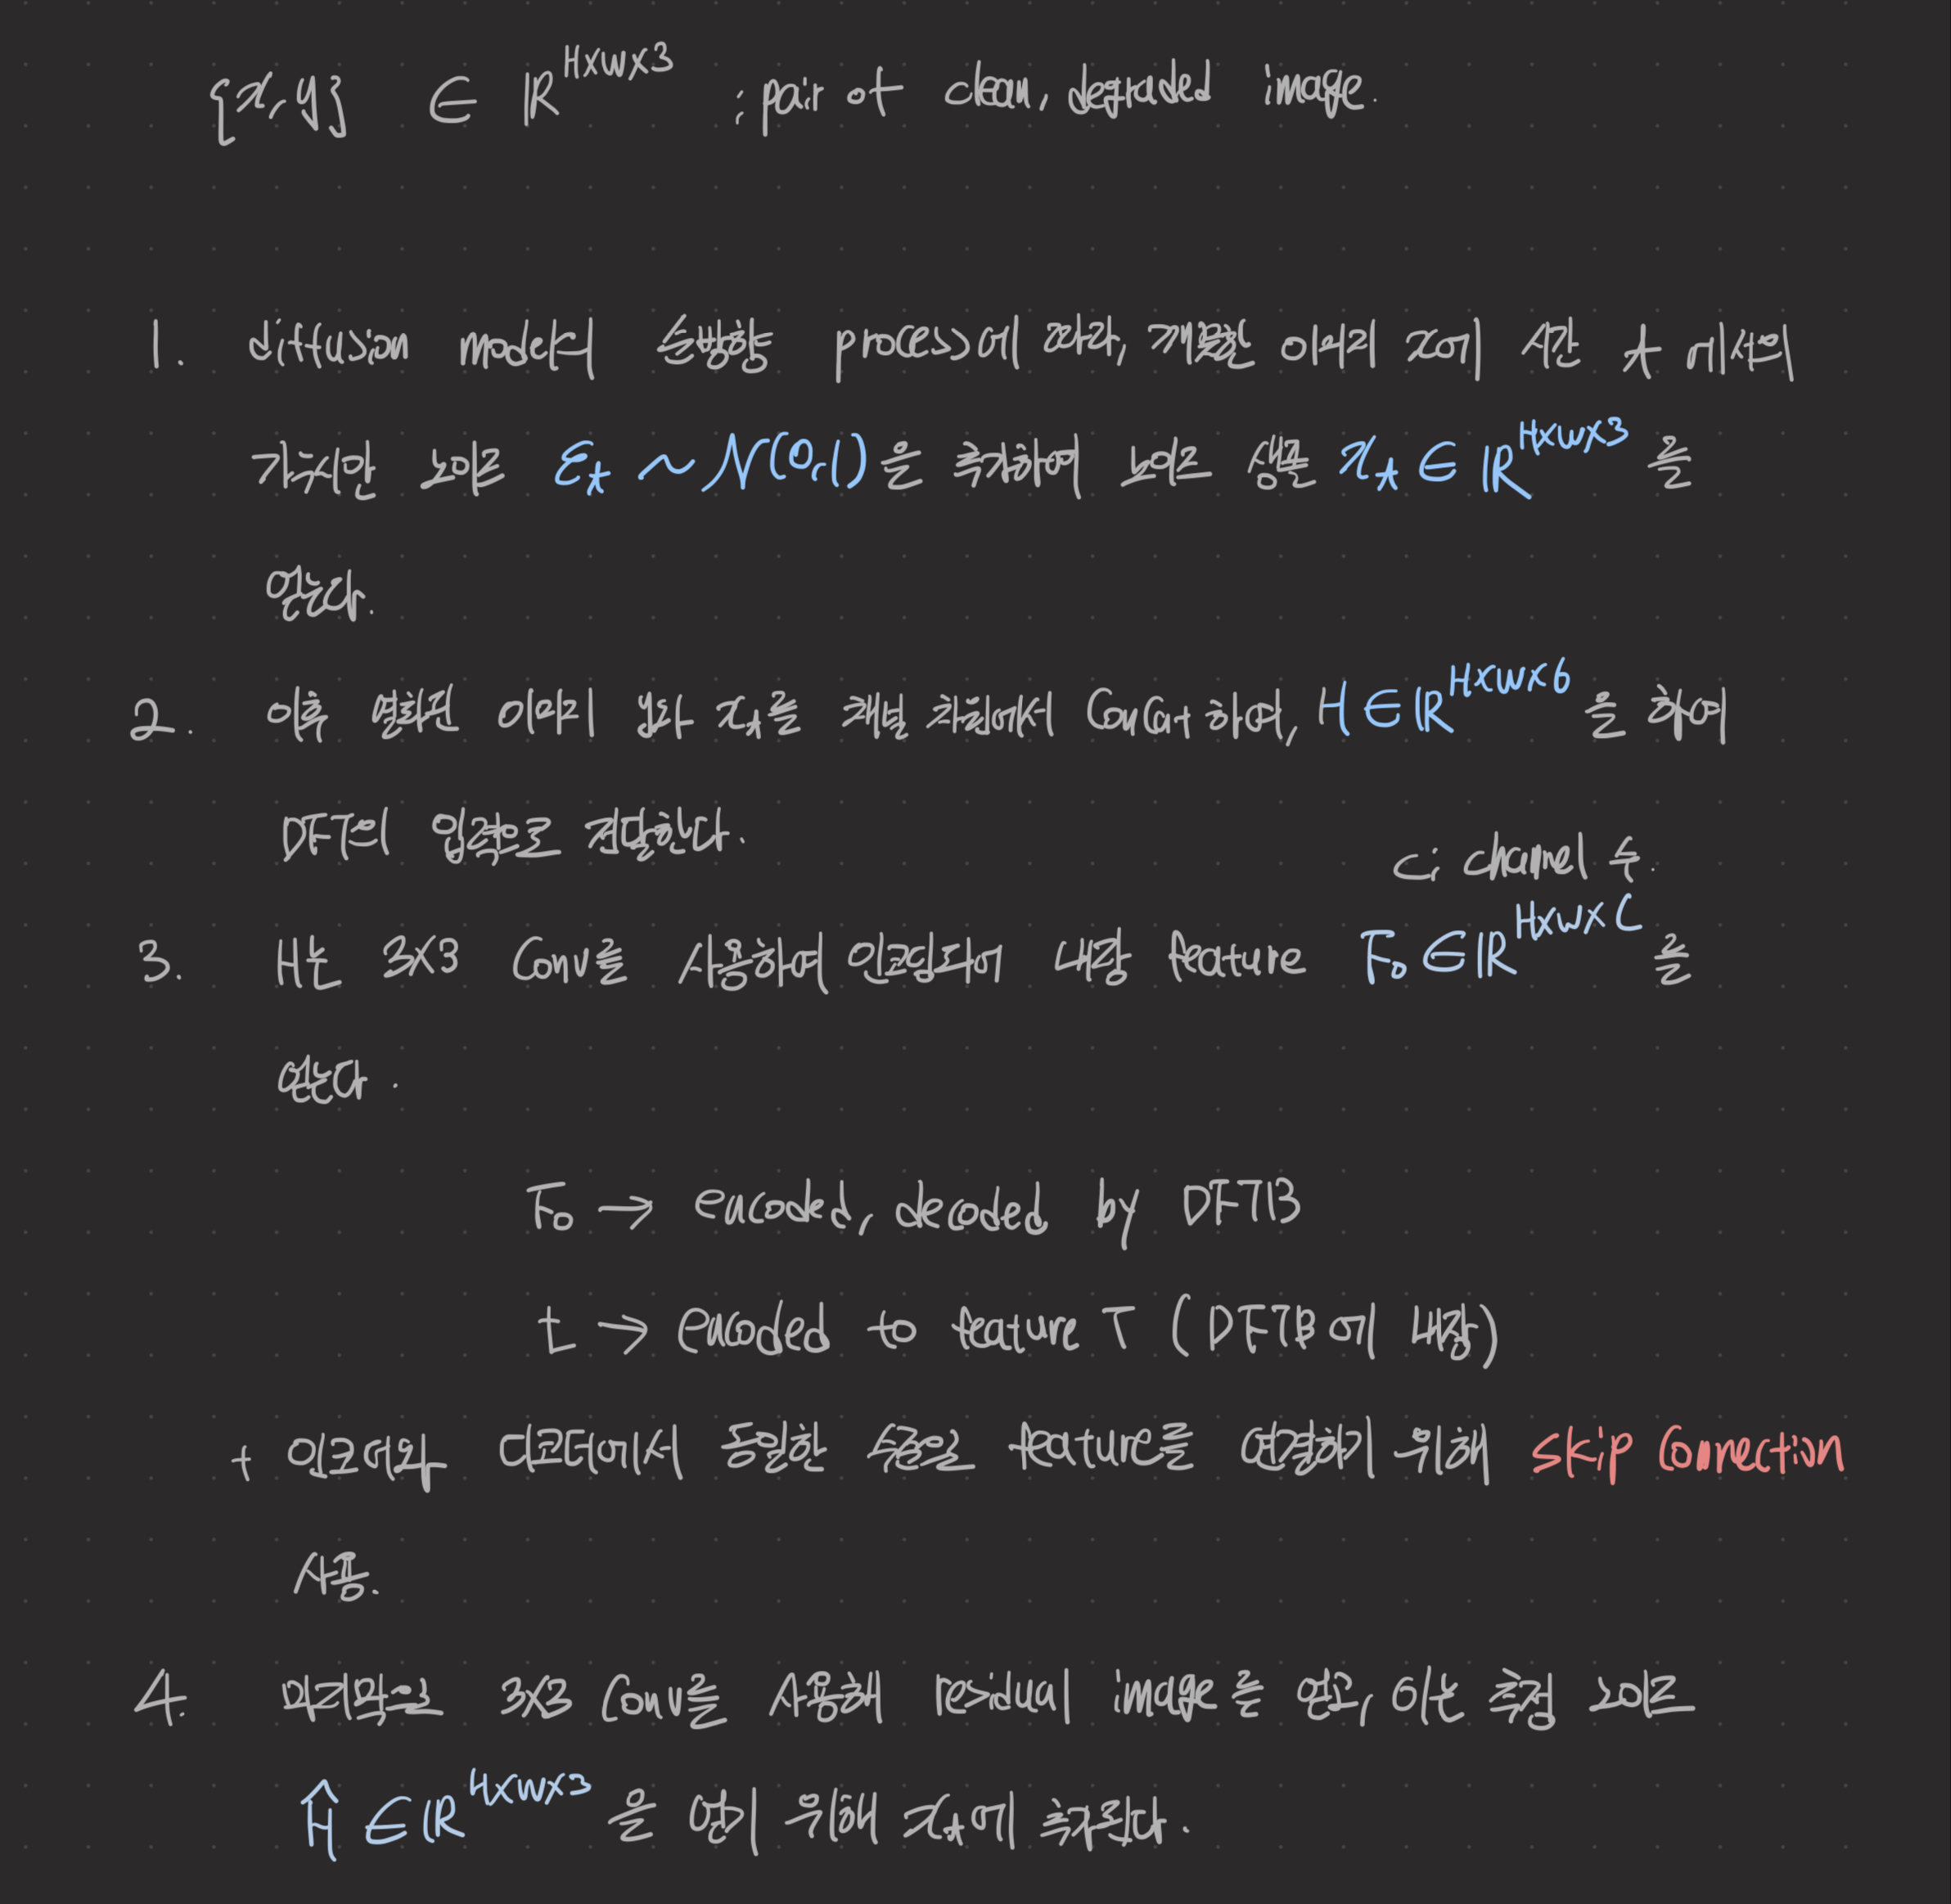 {x, y} ∈ ℝ^{H×W×3} : pair of clean, degraded image.
1. diffusion model의 순방향 process에 따라, 깨끗한 이미지 x에 시간 t 에서의
가우시안 노이즈 ε_t ~ N(0,1)을 추가하여 노이즈 샘플 x_t ∈ ℝ^{H×W×3} 를
얻는다.
2. 이후 열화된 이미지 y와 x_t를 채널 차원에서 Concat 하여, H ∈ ℝ^{H×W×6} 을 취하여
DFT의 입력으로 전달한다.
C: channel 수.
3. H는 3×3 Conv를 사용하여 인코딩되어 내장 feature F_0 ∈ ℝ^{H×W×C} 를
얻는다.
F_0 → encoded, decoded by DFTB
t → encoded to feature T (DFTB에 내장)
+ 인코더와 디코더에서 동일한 수준으로 feature를 연결하기 위해 skip Connection
사용.
4. 마지막으로 3×3 Conv를 사용해 residual image를 얻고, 이는 추정 노이즈
Ĥ ∈ ℝ^{H×W×3} 을 얻기 위해 x_t에 추가된다.